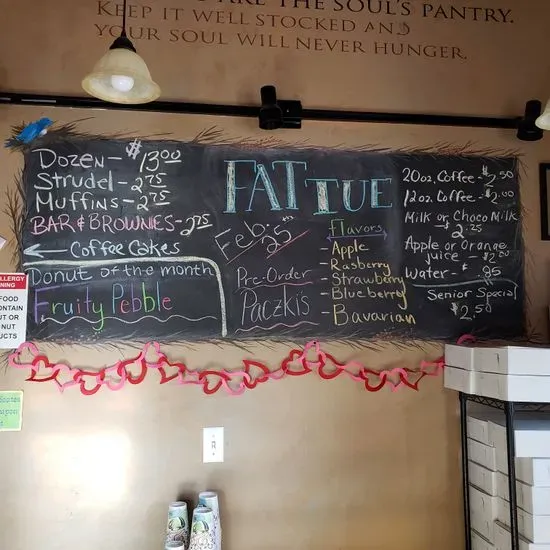 ARE THE SOUL'S PANTRY.
KEEP IT WELL STOCKED AND
YOUR SOUL WILL NEVER HUNGER.
DOZEN - $13.00
STRUDEL - 2.75
MUFFINS - 2.75
BAR & BROWNIES - 2.75
← COFFEE CAKES
Donut of the month
Fruity Pebble
FAT TUE
Feb. 25th
Pre-Order
Paczkis
Flavors
- Apple
- Rasberry
- Strawberry
- Blueberry
- Bavarian
20oz. Coffee - $2.50
12oz. Coffee - $2.00
Milk or Choco Milk
- $2.25
Apple or Orange
juice - $2.00
Water - $.85
Senior Special
$2.50
ALLERGY
FOOD
NUT OR
NUT